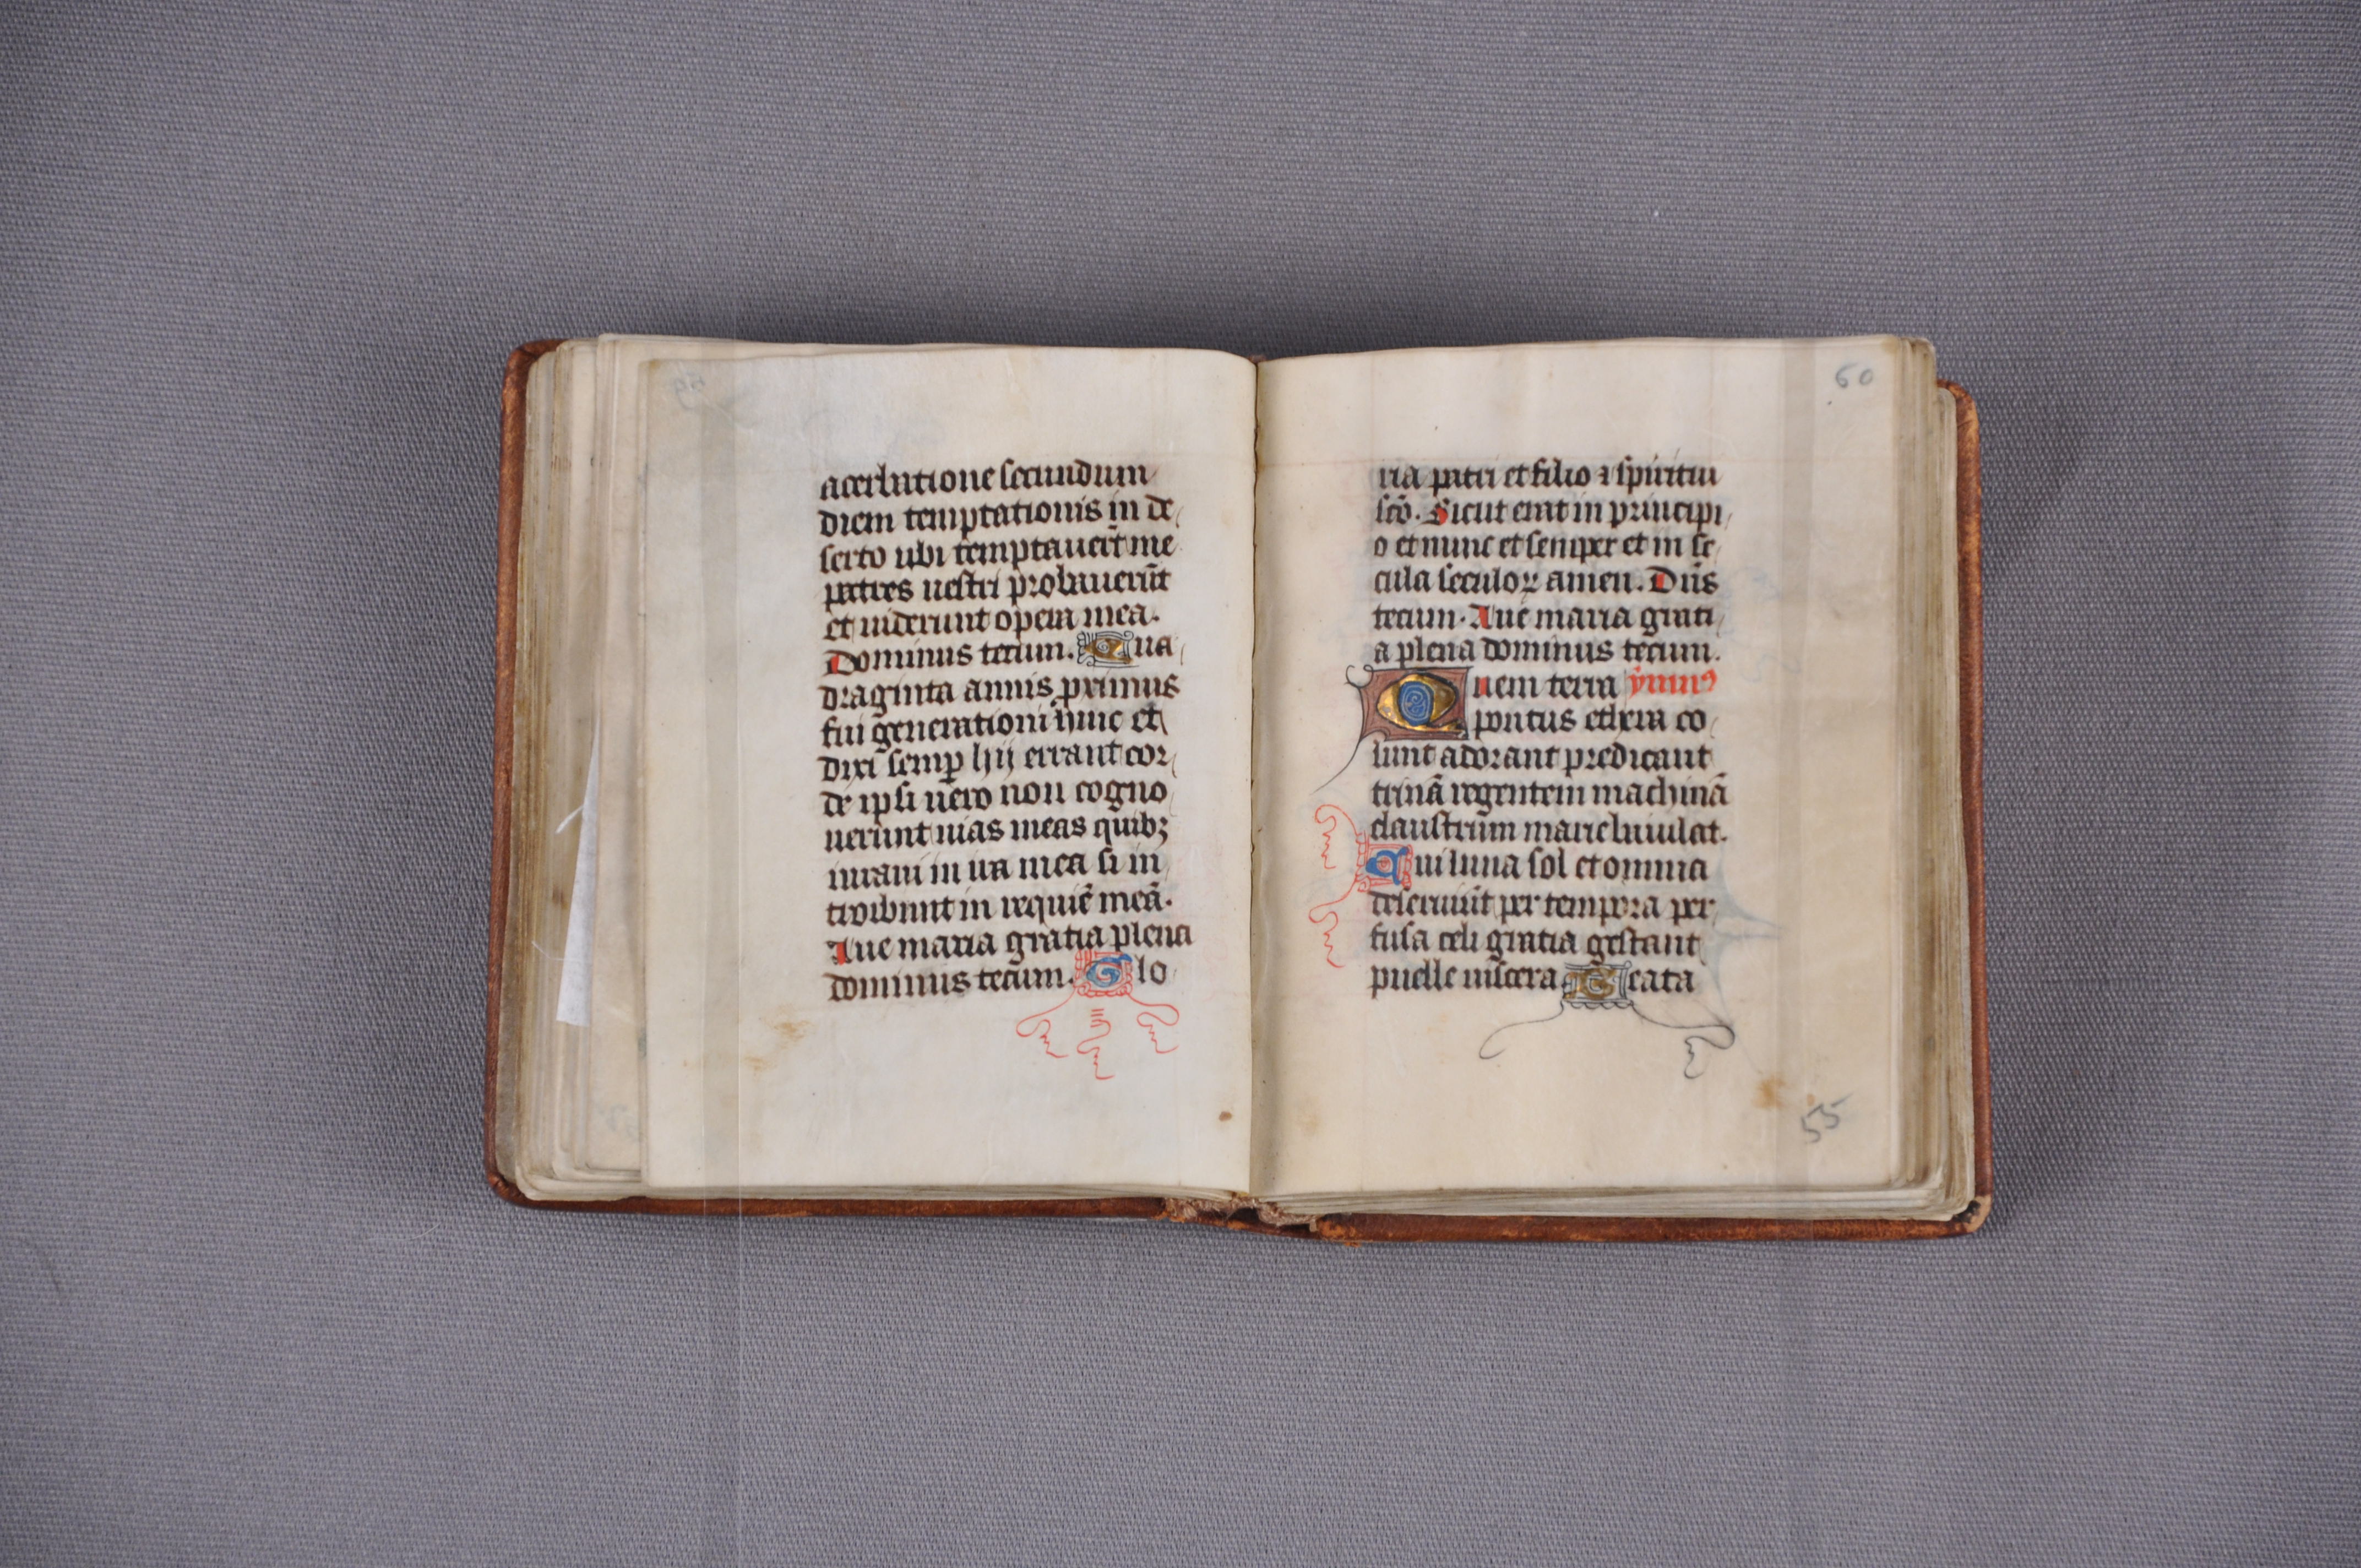 acerbatione secundum
diem temptationis in de
serto ubi temptauerūt me
patres uestri probauerūt
et uiderunt opera mea.
Dominus tecum. Qua
draginta annis proximus
fui generationi huic et
dixi semp hij errant cor
de ipsi uero non cogno
uerunt uias meas quibꝫ
iuraui in ira mea si in
troibunt in requiē meā.
Aue maria gratia plena
dominus tecum. Glo
60
ria patri et filio ⁊ spiritui
scō. Sicut erat in principi
o et nunc et semper et in se
cula seculoꝝ amen. Dn̄s
tecum. Aue maria grati
a plena dominus tecum.
Quem terra ymnꝰ
pontus ethera co
lunt adorant predicant
trinā regentem machinā
claustrum marie baiulat.
Qui luna sol et omnia
deseruiūt per tempora per
fusa celi gratia gestant
puelle uiscera Beata
55